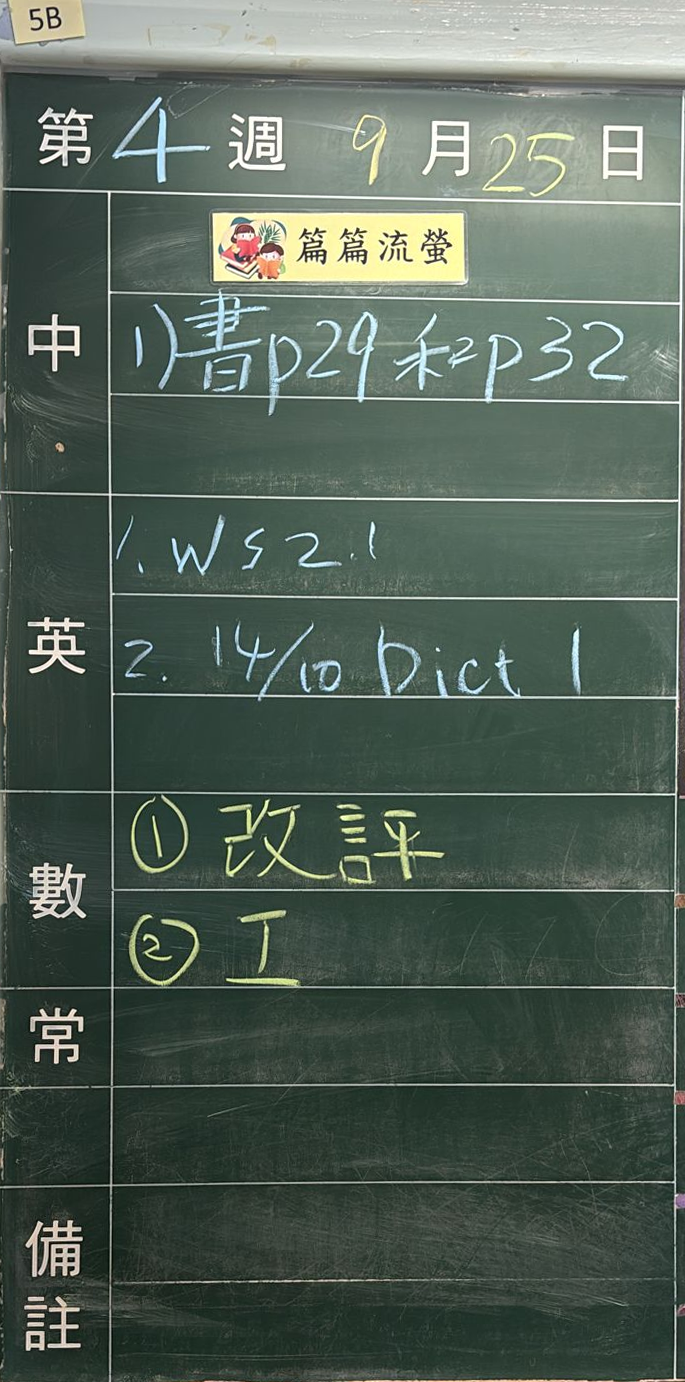 5B
第4週 9月25日
中
篇篇流螢
1)書p29和p32
英
1. WS 2.1
2. 14/10 Dict 1
數
① 改評
② 工
常
備註